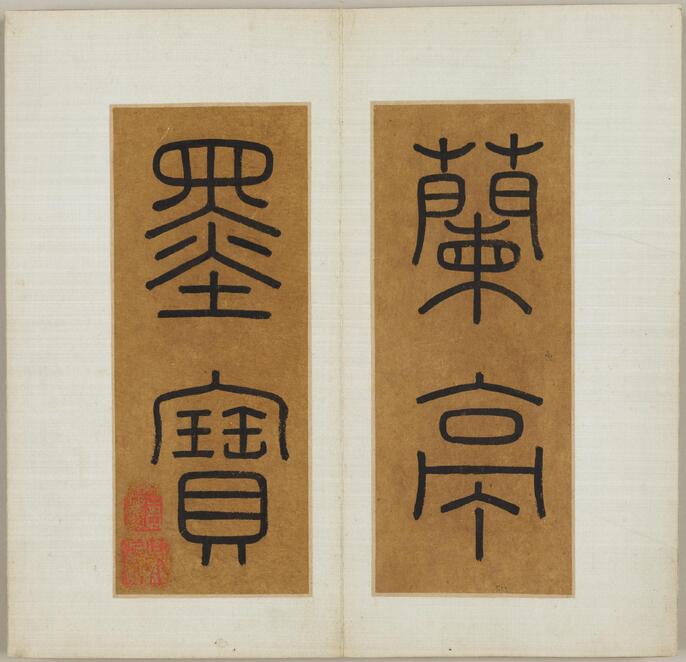 蘭亭
墨寶